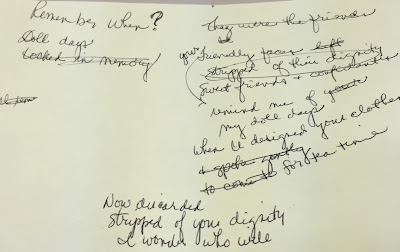 Remember When?
Doll days
Locked in memory
They were the
your friendly faces left
stripped of their dignity
Sweet friends + confidantes
remind me of your
my doll days
when I designed your clothes
+ spoke gently
to come to for tea time
Now discarded
stripped of your dignity
I wonder who will